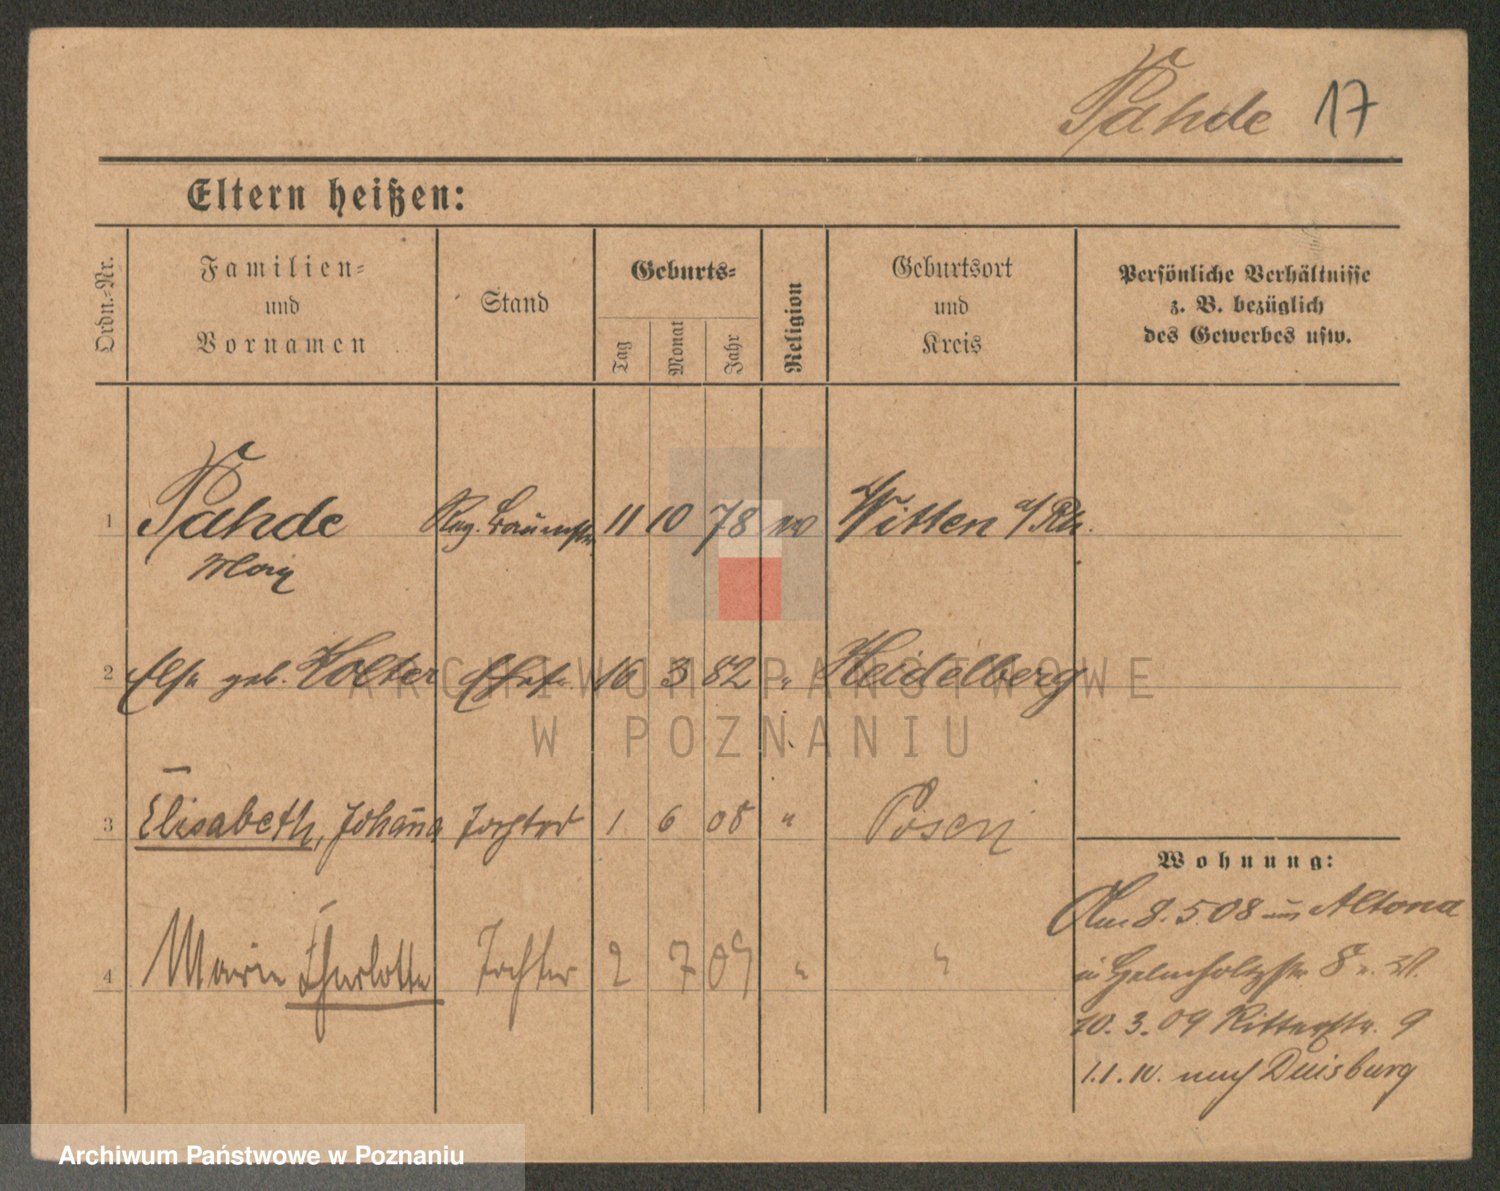 Pahde 17
Eltern heißen:
Ordn.-Nr.
Familien-
und
Vornamen
Stand
Geburts-
Tag
Monat
Jahr
Religion
Geburtsort
und
Kreis
Persönliche Verhältnisse
z. B. bezüglich
des Gewerbes usw.
1 Pahde Reg. Baumstr. 11 10 78 Witten a/ Rh.
2 Else geb. Kolter Ehefr. 16 3 82 " Heidelberg
3 Elisabeth, Johanna Tochter 1 6 08 " Posen
4 Marie Charlotte Tochter 2 7 09 " "
Wohnung:
Am 8.5.08 aus Altona
in Helmholtzstr. 8
10.3.09 Ritterstr. 9
1.1.10. nach Duisburg
ARCHIWUM PAŃSTWOWE
W POZNANIU
Archiwum Państwowe w Poznaniu